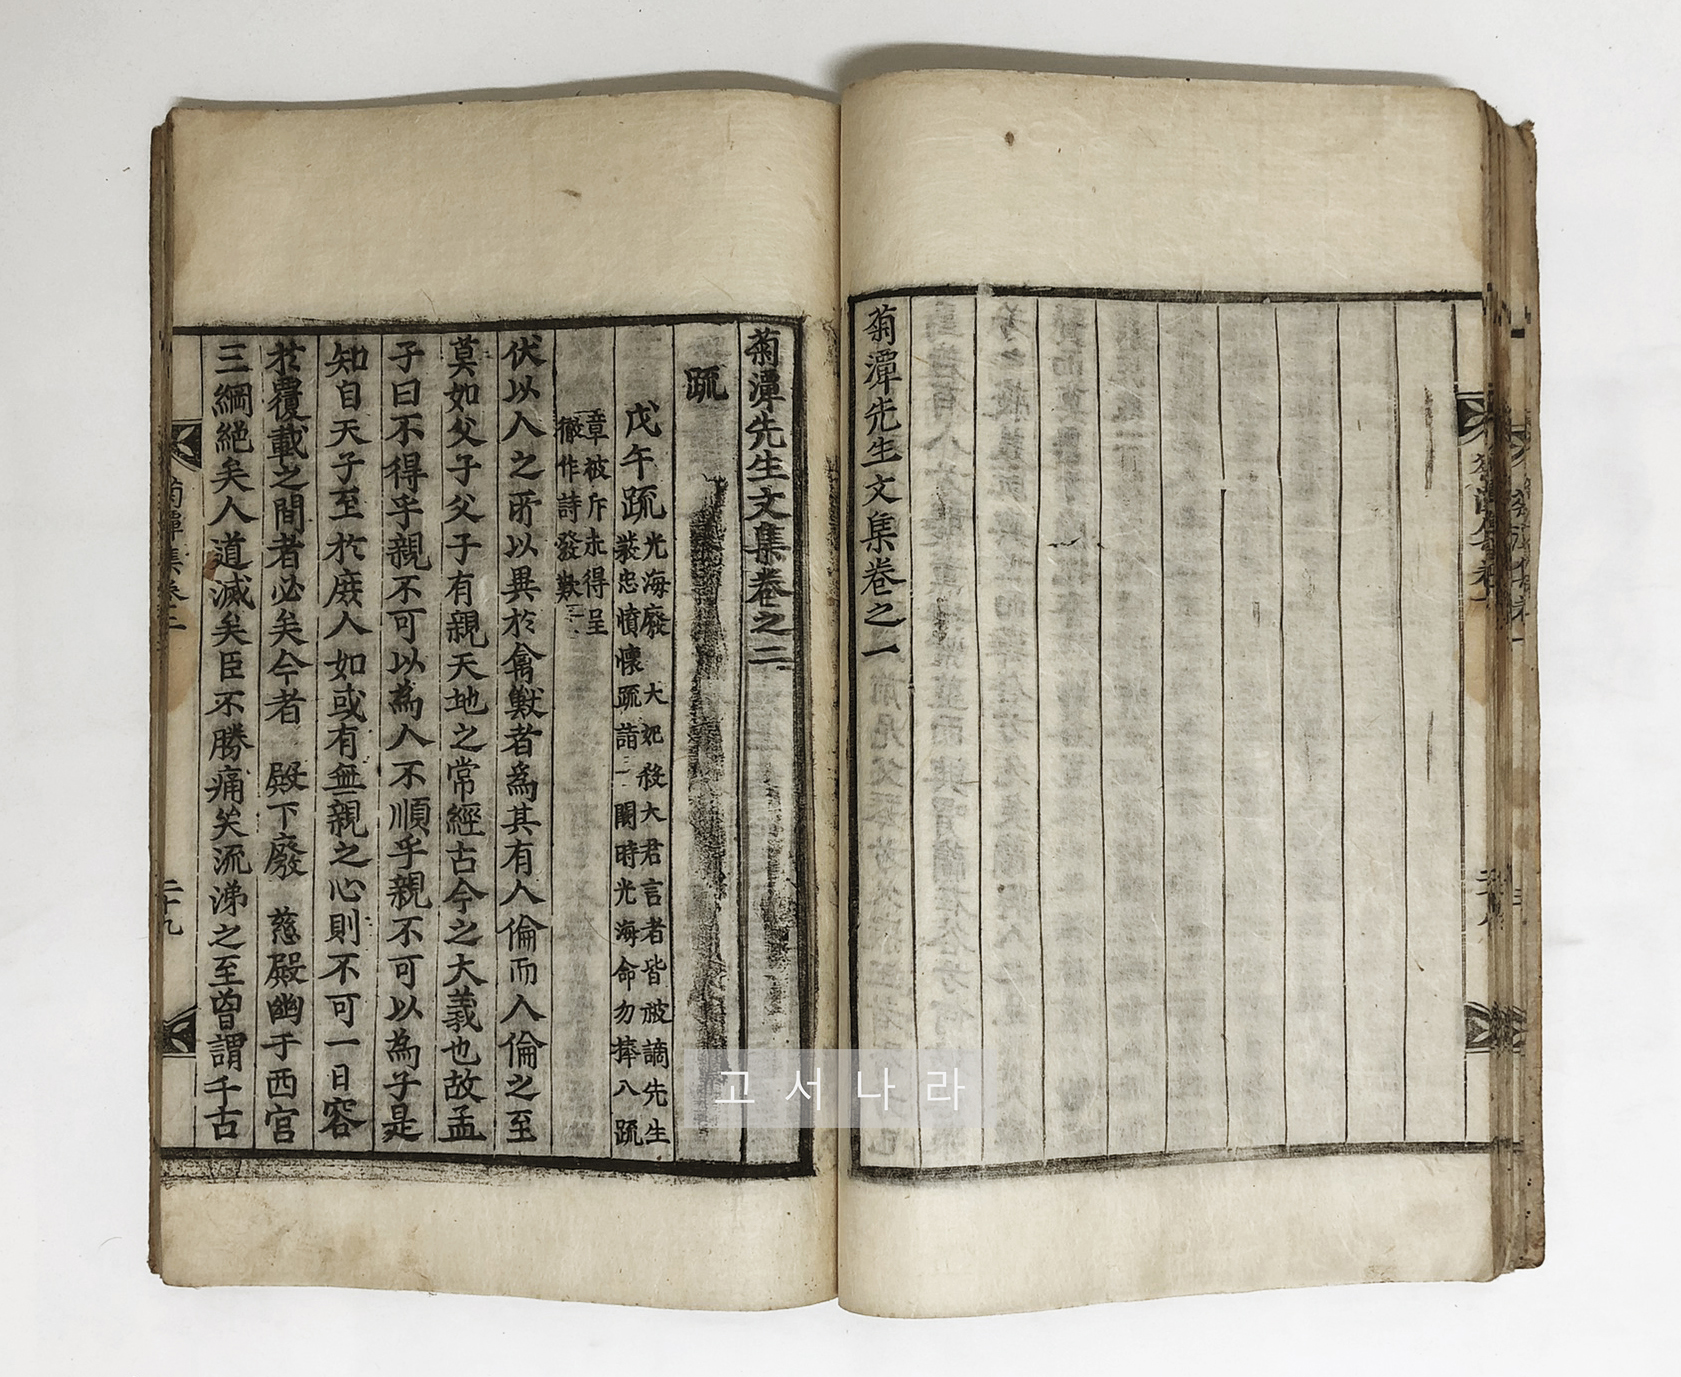 菊潭先生文集卷之一
菊潭先生文集卷之二
疏
戊午疏
光海廢 大妃殺大君言者皆被謫先生
裁忠憤懷疏詣 闕時光海命勿捧入疏
章被斥未得呈
徹作詩發歎
伏以人之所以異於禽獸者爲其有人倫而人倫之至
莫如父子父子有親天地之常經古今之大義也故孟
子曰不得乎親不可以為人不順乎親不可以為子是
知自天子至於庶人如或有無親之心則不可一日容
於覆載之間者必矣今者 殿下廢 慈殿幽于西宮
三綱絕矣人道滅矣臣不勝痛矣流涕之至曾謂千古
菊潭集卷二
二十九
二十八
고서나라